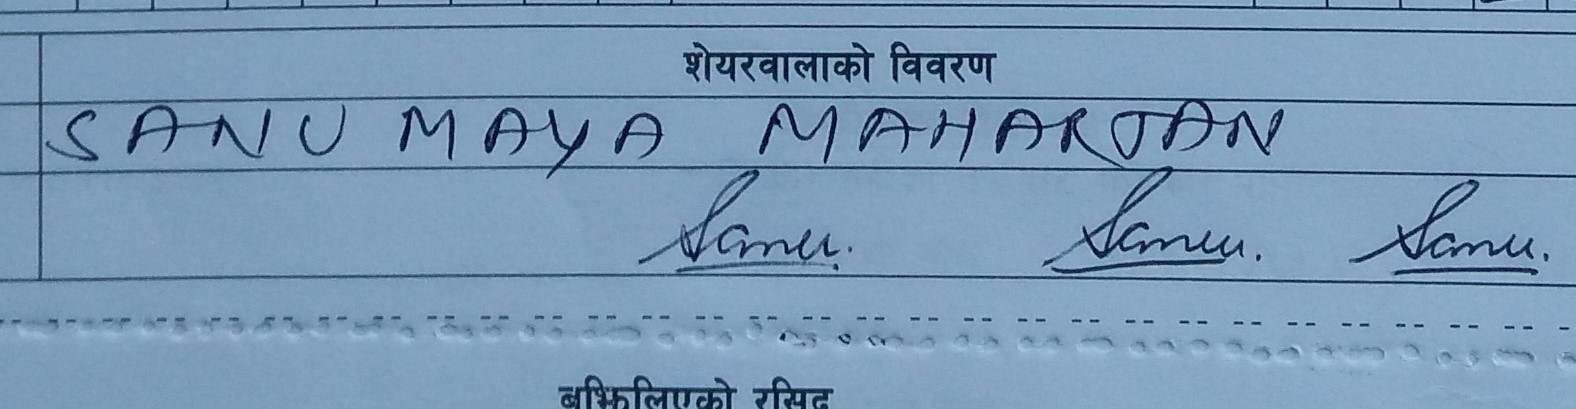 शेयरवालाको विवरण
SANU MAYA MAHARJAN
Sanu. Sanu. Sanu.
बुझिलिएको रसिद